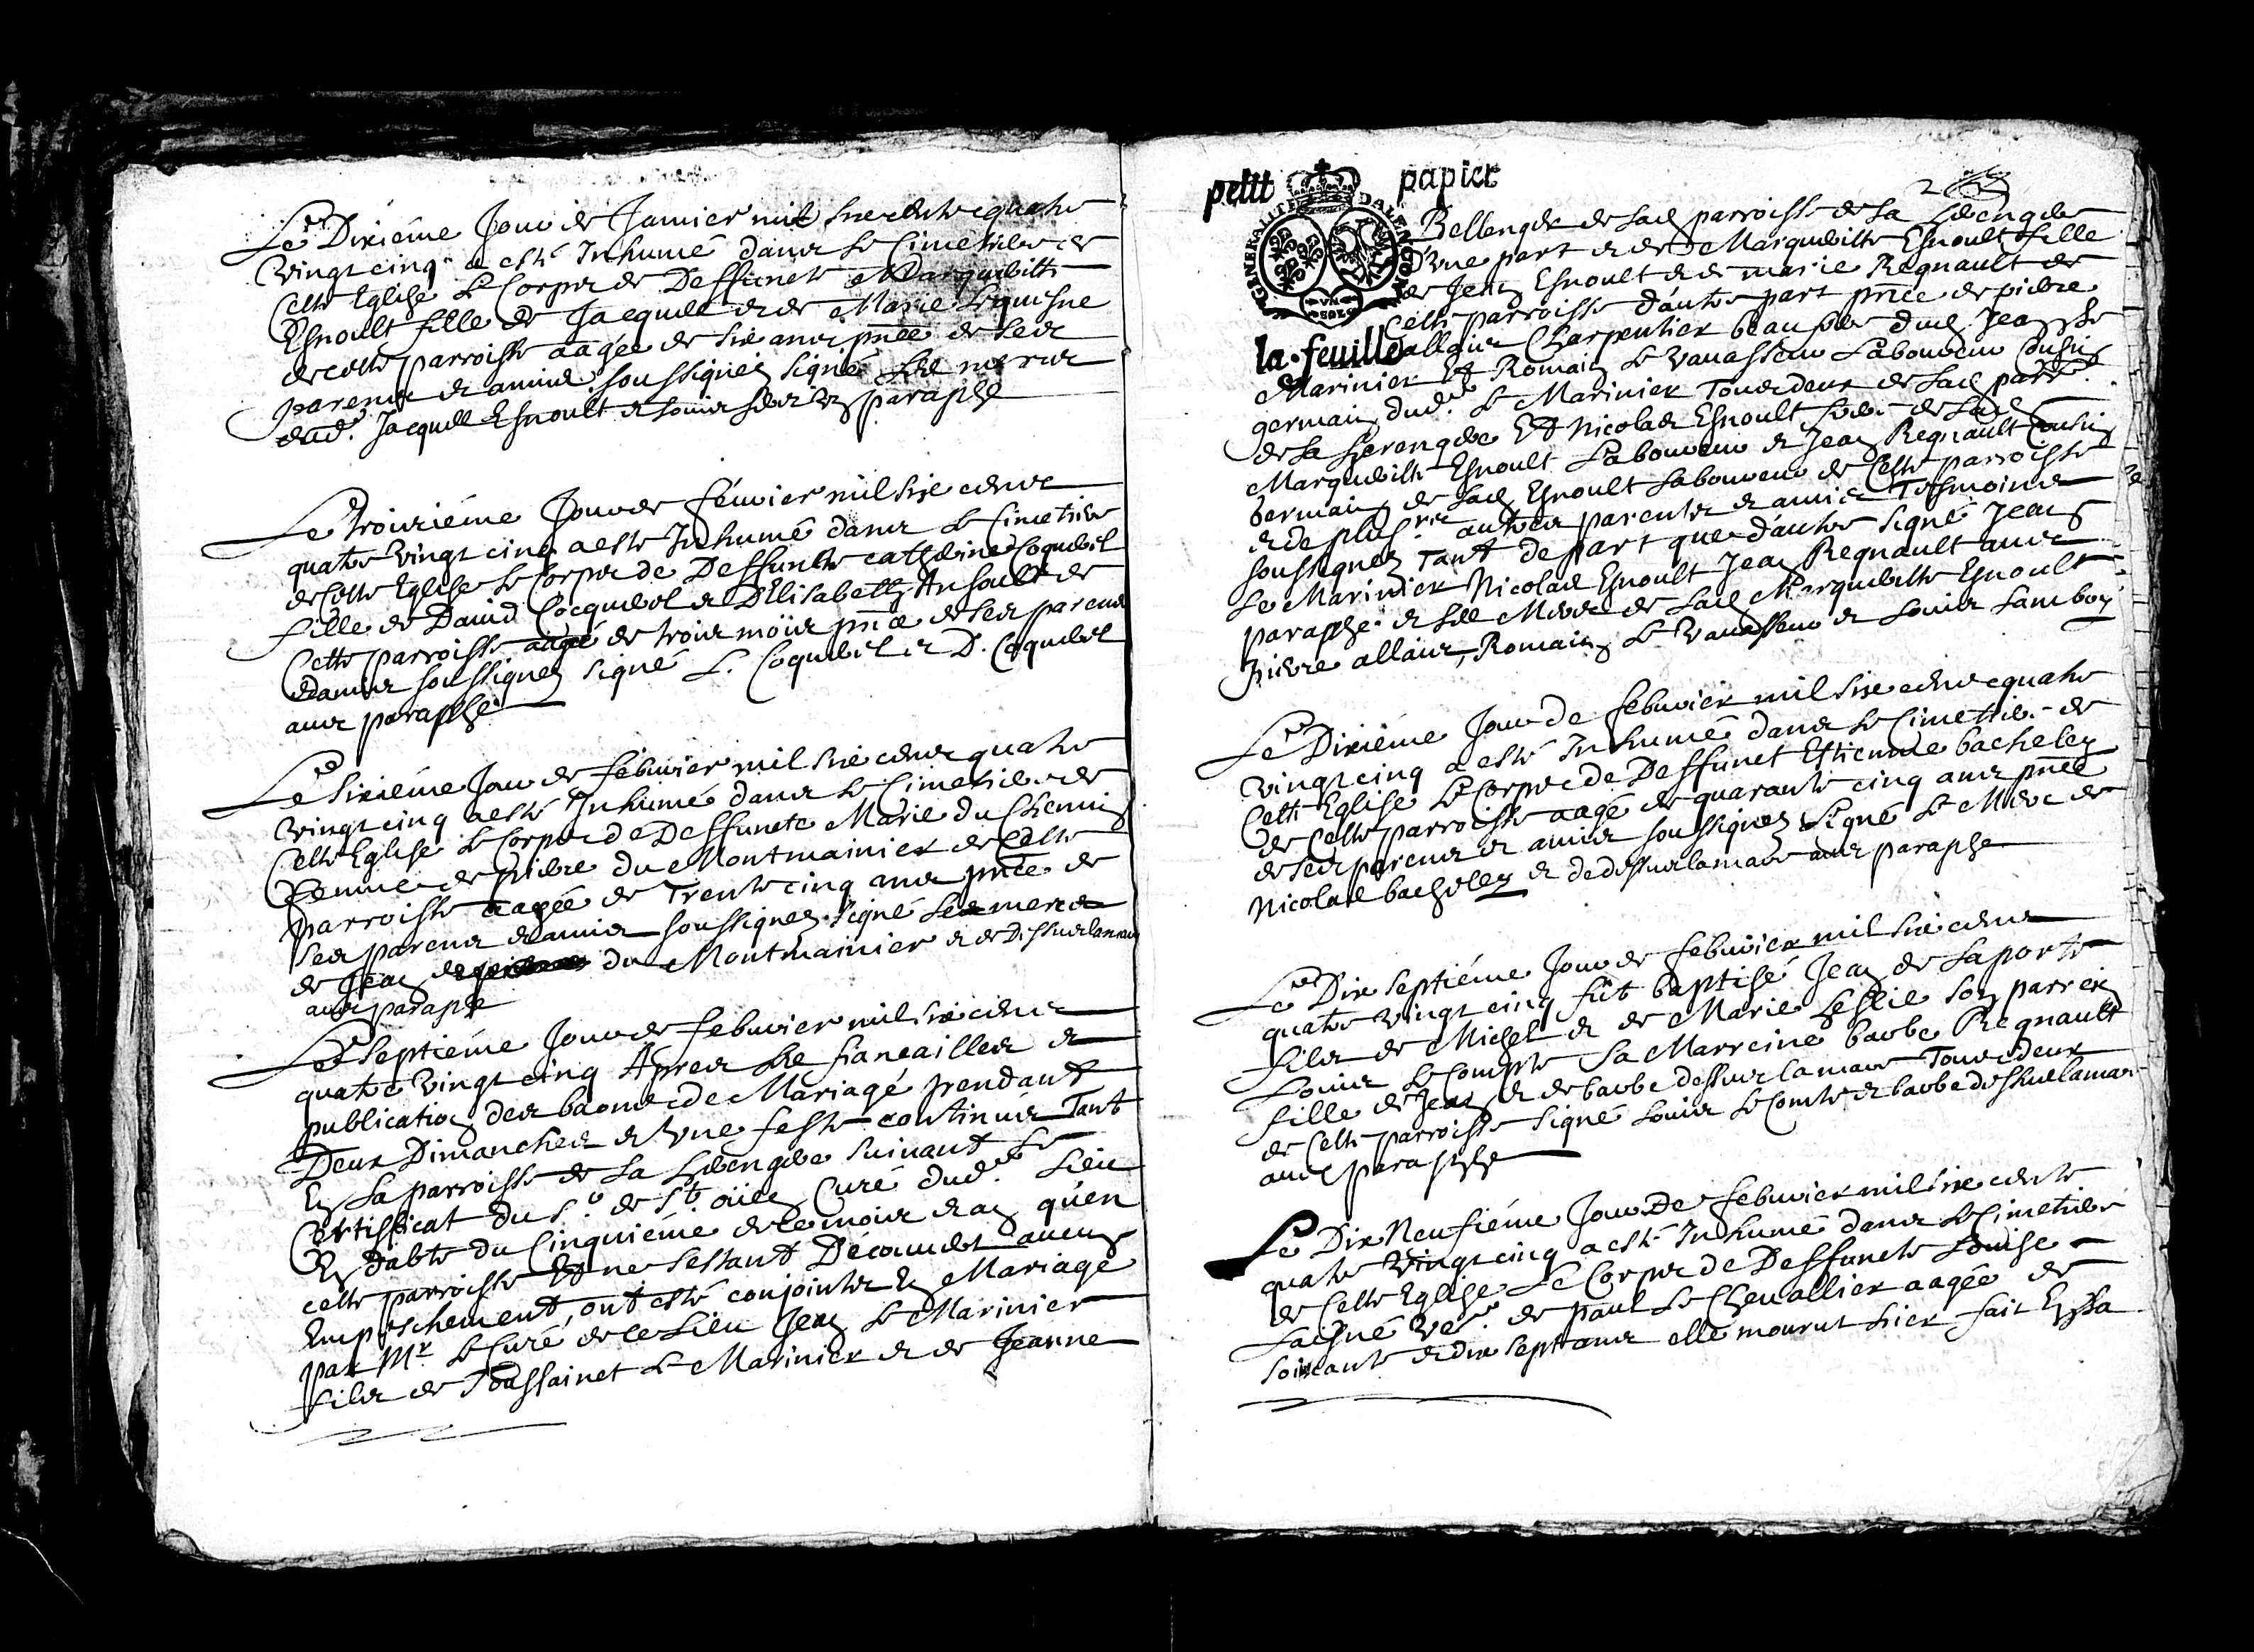 Le Dixiéme Jour de Januier mil six cents quatre
Vingt cinq a esté Inhumé dans le Cimetiere de
Cette Eglise Le Corps de Deffuncte Margueritte
Esnoult fille de Jacques et de Marie Lequesne
de cette parroisse aagée de six ans pnce de ses
parents et amis soussignez signé
dud. Jacques Esnoult et Louis paraphe
Le troisiéme Jour de féurier mil six cents
quatre Vingt cinq a esté Inhumé dans Le Cimetiere
de Cette Eglise Le Corps de Deffuncte catherine Coquerel
fille de Dauid Cocquerel et D'Elisabeth Ansoult de
Cette parroisse aagé de trois móis pnce de ses parens
et amis soussignez signé L. Coquerel et D. Coquerel
auec paraphe
Le Sixiéme Jour de feburier mil six cents quatre
Vingt cinq a esté Inhumé dans Le Cimetiere de
Cette Eglise Le Corps de Deffuncte Marie du Chemin
femme de pierre du Montmainier de Cette
parroisse aagée de Trente cinq ans pnce de
ses parens et amis soussignez signé
de Jean du Montmainier et de Dessuslamare
auec paraphe
Le Septiéme Jour de feburier mil six cents
quatre Vingt cinq Apres Les fiancailles et
publication des banns de Mariagé pendant
Deux Dimanches et Vne feste continués Tant
En La parroisse de La Herengere Suiuant Le
Certifficat du Sr. de St. oüen Curé dud. Lieu
En dabte du Cinquiéme de ce mois et an qu'en
cette parroisse Et ne sestant Découuert aucun
Empeschement, ont esté conjoints En Mariage
par Mr. Le Curé de ce Lieu Jean Le Marinier
fils de Toussainct Le Marinier et de Jeanne
petit papier
GNERALITE DALENCON
VN SOL
la feuille
2
Bellenger de lad parroisse de La Herengere
D'Vne part et de Marguerite Esnoult fille
de Jean Esnoult et de marie Regnault de
Cette parroisse d'autre part pnce de pierre
allais Charpentier beau frere dud. Jean Le
Marinier Et Romain Le Vauasseur Laboureur Cousin
germain dud. Le Marinier Tous deux de Lad parr.
de La Herengere Et Nicolas Esnoult frere de Lad
Marguerite Esnoult Laboureur et Jean Regnault Cousin
Germain de Lad Esnoult Laboureur de Cette parroisse
et de plusrs. autres parents et amis Tesmoins
soussignez Tant de part que d'autre signé Jean
Le Marinier Nicolas Esnoult Jean Regnault auec
paraphe et Les Merc de Lad Marguerite Esnoult
pierre allais, Romain Le Vauasseur et Louis Lamboy
Le Dixiéme Jour de feburier mil six cents quatre
Vingt cinq a esté Inhumé dans Le Cimetiere de
Cette Eglise Le Corps de Deffunct Estienne bacheley
de Cette parroisse aagé de quarante cinq ans pnce
de ses parens et amis soussignez signé Le Merc de
Nicolas bacheley et de dessuslamare auec paraphe
Le Dix Septiéme Jour de feburier mil six cents
quatre Vingt cinq fut baptisé Jean de Laporte
fils de Michel et de Marie Leslie son parrein
Louis Le Compte Sa Marreine barbe Regnault
fille de Jean et de barbe dessuslamare Tous deux
de Cette parroisse signé Louis Le Comte et barbe dessuslamare
auec paraphe
Le Dix Neufiéme Jour De feburier mil six cents
quatre Vingt cinq a esté Inhumé dans Le Cimetiere
de Cette Eglise Le Corps de Deffuncte Louise
Laisné Vefe. de paul Le Cheuallier aagée de
soixante et dix sept ans elle mourut hier fait En La